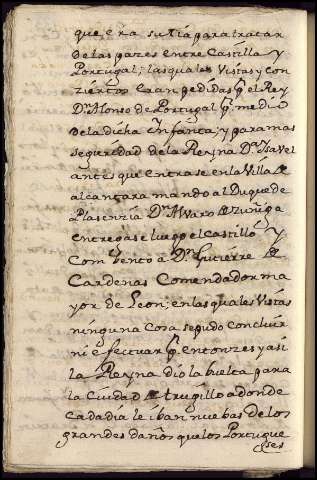 que era su tia para tratar
de las pazes entre Castilla y
Portugal; las quales Vistas y con
ziertos eran pedidas pr el Rey
Dn Alonso de Portugal pr medio
de la dicha Infanta; y para mas
seguridad de la Reyna Da Isavel
antes que entrase en la Villa de
alcantara mando al Duque de
Plasenzia Dn Alvaro de Zuñiga
entregase luego el Castillo y
Combento a Dn Gutierre de
Cardenas Comendador ma
yor de Leon; en las quales Vistas
ninguna cosa se pudo concluir
ni efectuar pr entonzes y asi
la Reyna dio la buelta para
la Ciudad de trugillo adonde
cada dia le iban nuebas de los
grandes daños que los Portugue
ses